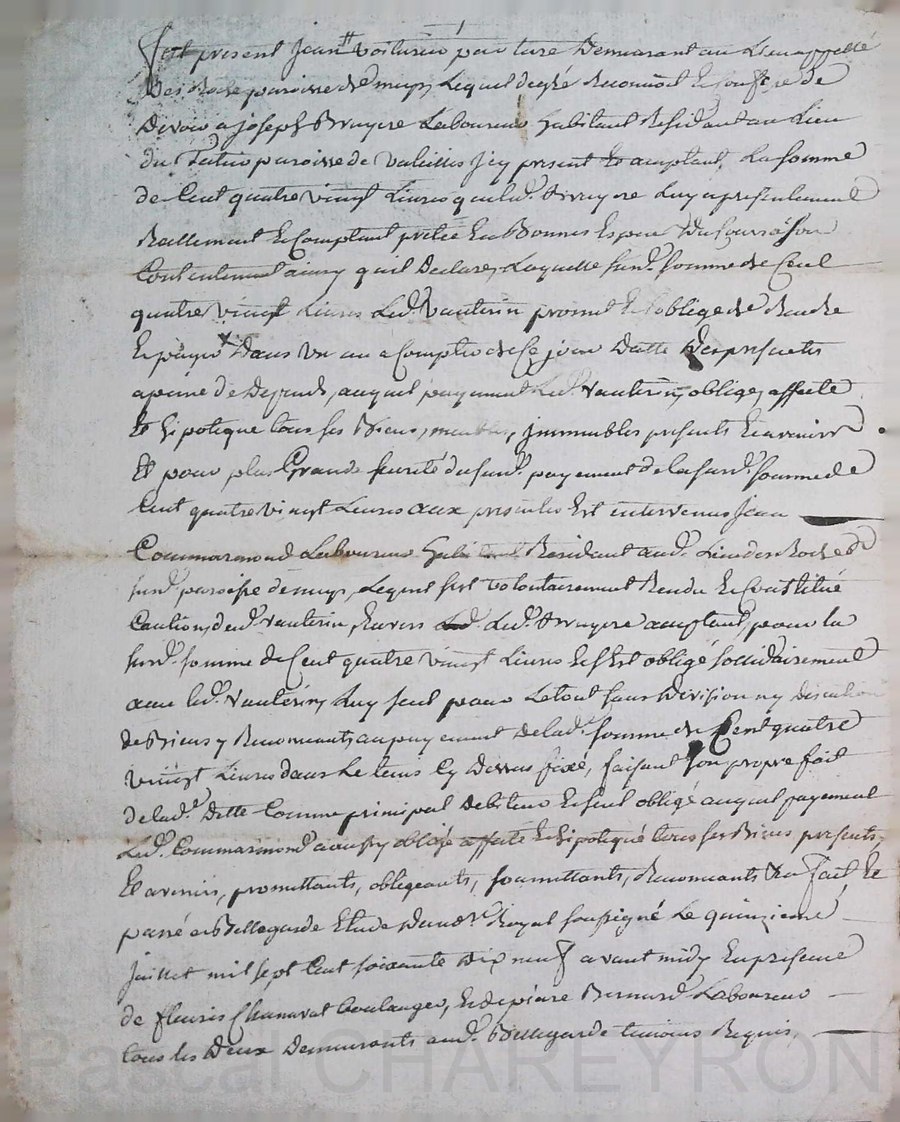 Fut present Jean Voiturier par terre Demeurant au Lieu appellé
Des Roche paroisse de Lequel de gré Reconnoit Et Confesse de
Devoir a Joseph Bruyere Laboureur habitant Residant au Lieu
du paroisse de Valeilles Icy present Et acceptant, La somme
de Cent quatre vingt Livres que Led. Bruyere Luy a presentement
Reellement Et Comptant pretée En Bonnes Espece Du Cours a son
Contentement ainsy qu'il Declare, Laquelle susd. somme de Cent
quatre vingt Livres Led. Vauterin promet Et s'oblige de Rendre
Et payer Dans Un an a Compter de Ce jour Datte Des presentes
a peine de Depends, auquel payement Led. Vauterin, oblige, affecte
Et hipoteque tous ses Biens, meubles, Immeubles presents Et avenirs
Et pour plus Grande surété du susd. payement de la susd. somme de
Cent quatre vingt Livres aux presentes Est intervenus Jean
Commarmond Laboureur habitant Residant aud. Lieu des Roche
susd. paroisse de Lequel s'est volontairement Rendu Et Constitué
Caution, dud. Vauterin, Envers Led. Bruyere acceptant, pour la
susd. somme de Cent quatre vingt Livres Et s'Est obligé sollidairement
avec led. Vauterin, Luy seul pour Le tout sans Division ny Discution
de Biens y Renonceants au payement de lad. somme de Cent quatre
vingt Livres dans Le tems Cy Dessus fixé, faisant son propre fait
de lad. Dette Comme principal Debiteur Et seul obligé auquel payement
Led. Commarmond a aussy obligé affecté Et hipotequé tous ses Biens presents,
Et avenirs, promettants, obligeants, soumettants, Renonceants fait Et
passé a Bellegarde Etude Du no.re Royal soussigné Le quinzieme
Juillet mil sept Cent soixante Dix neuf avant midy En presence
de fleuris Chanavat boulanger, Et de piere Bernard Laboureur
tous les Deux Demeurants aud. Bellegarde temoins Requis,
Pascal CHAREYRON